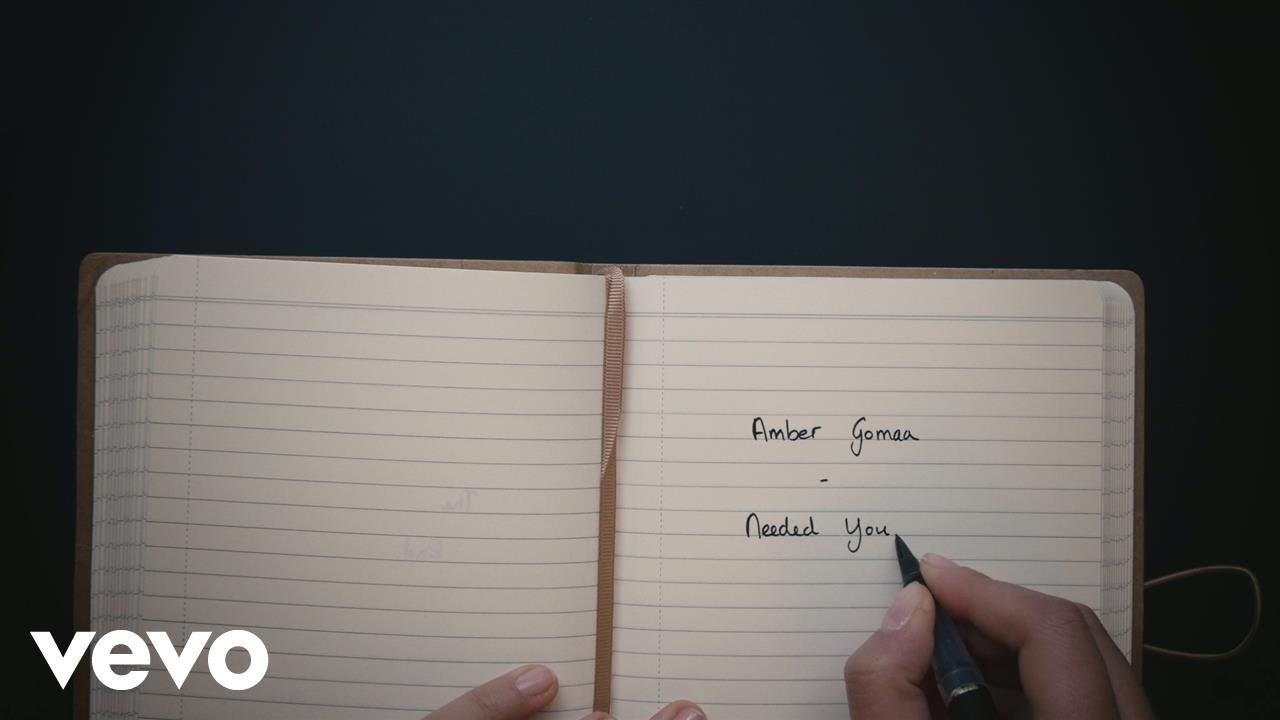 Amber Gomaa
-
Needed You
vevo